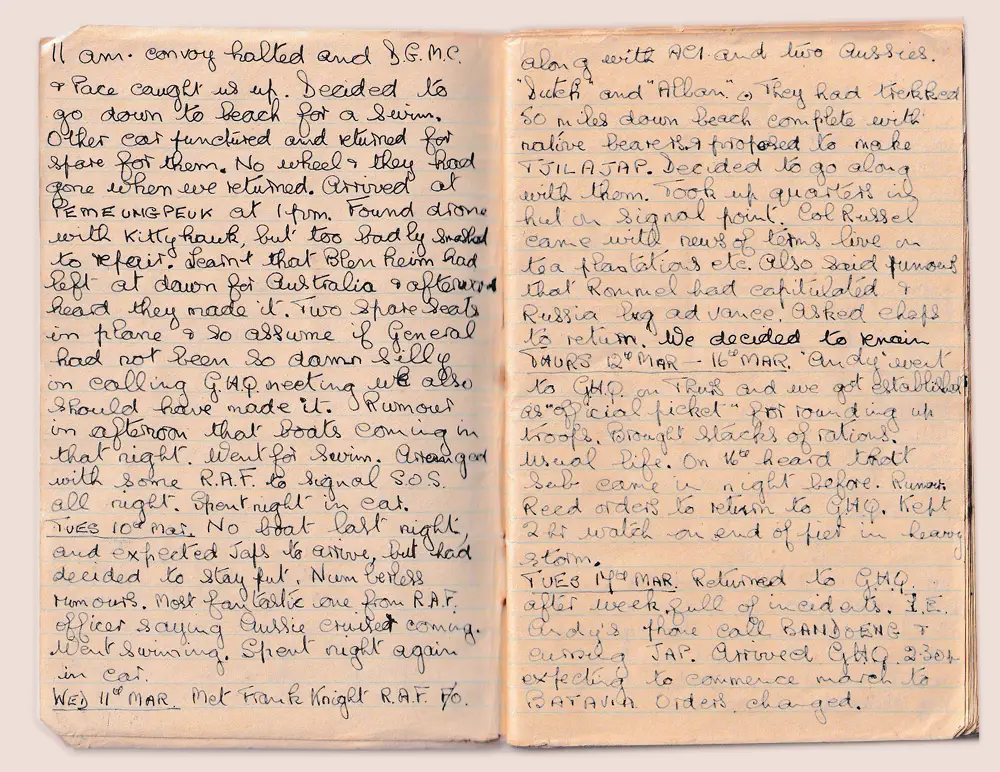 11 am. convoy halted and D.G.M.C.
& Pace caught us up. Decided to
go down to beach for a swim.
Other car punctured and returned for
spare for them. No wheel & they had
gone when we returned. Arrived at
PEMEUNGPEUK at 1 p.m. Found drome
with Kittyhawk, but too badly smashed
to repair. Learnt that Blenheim had
left at dawn for Australia & afterward
heard they made it. Two spare seats
in plane & so assume if General
had not been so damn silly
in calling GHQ meeting we also
should have made it. Rumour
in afternoon that boats coming in
that night. Went for swim. Arranged
with some R.A.F. to signal S.O.S.
all night. Spent night in car.
TUES 10th Mar. No boat last night,
and expected Japs to arrive, but had
decided to stay put. Numberless
rumours. Most fantastic one from R.A.F.
officer saying Aussie cruiser coming.
Went swimming. Spent night again
in car.
WED 11th MAR. Met Frank Knight R.A.F. F/O.
along with AC1 and two Aussies.
"Dutch" and "Alban". They had trekked
50 miles down beach complete with
native bearers & proposed to make
TJILAJAP. Decided to go along
with them. Took up quarters in
hut on signal point. Col Russel
came with news of terms live on
tea plantations etc. Also said rumours
that Rommel had capitulated &
Russia big advance. Asked chaps
to return. We decided to remain
THURS 12th MAR - 16th MAR. "Andy" went
to GHQ on Thurs and we got established
as "official picket" for rounding up
troops. Brought stacks of rations.
Usual life. On 16th heard that
sub came in night before. Rumour.
Reed orders to return to GHQ. Kept
2 hr watch on end of pier in heavy
storm.
TUES 17th MAR. Returned to G.H.Q.
after week full of incidents. I.E.
Andy's phone call BANDOENG &
cursing JAP. Arrived GHQ 2.30
expecting to commence march to
BATAVIA. Orders changed.